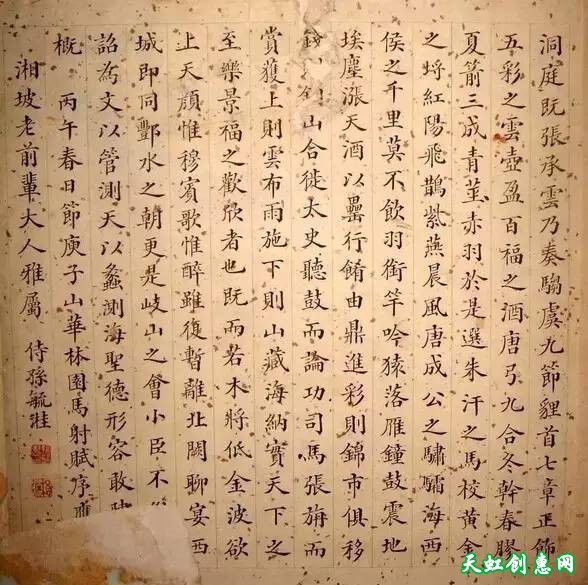 洞庭既張承雲乃奏騶虞九節貍首七章正飾
五彩之雲壺盈百福之酒唐弓九合冬幹春膠
夏箭三成青莖赤羽於是選朱汗之馬校黃金
之埒紅陽飛鵲紫燕晨風唐成公之驌驦海西
侯之千里莫不飲羽銜竿吟猿落雁鐘鼓震地
埃塵漲天酒以罍行餚由鼎進彩則錦市俱移
錢山合徙太史聽鼓而論功司馬張旃而
賞獲上則雲布雨施下則山藏海納實天下之
至樂景福之歡欣者也既而若木將低金波欲
上天顏惟穆賓歌惟醉雖復暫離北闕聊宴西
城即同酆水之朝更是岐山之會小臣不
詔為文以管測天以蠡測海聖德形容敢
概 丙午春日節庾子山華林園馬射賦序應
湘坡老前輩大人雅屬 侍孫毓溎
天虹创惠网